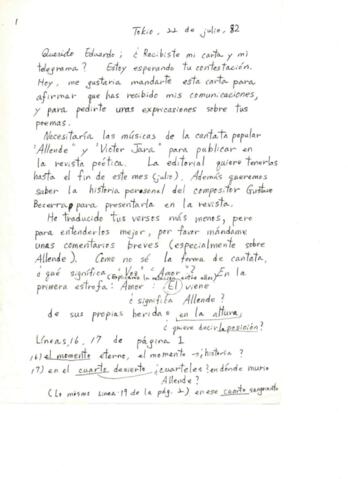 1
Tokio, 22 de julio, 82
Querido Eduardo; ¿Recibiste mi carta y mi
telegrama? Estoy esperando tu contestación.
Hoy, me gustaria mandarte esta carta para
afirmar que has recibido mis comunicaciones,
y para pedirte unas expricasiones sobre tus
poemas.
Necesitaría las músicas de la cantata popular
"Allende" y "Victor Jara" para publicar en
la revista poética. La editorial quiere tenerlas
hasta el fin de este mes (julio). Además queremos
saber la historia personal del compositor Gustavo
Becerra, para presentarla en la revista.
He traducido tus versos más menos, pero
para entenderlos mejor, por favor mándame
unas comentarios breves (especialmente sobre
Allende). Como no sé la forma de cantata,
¿qué significa "Voz" "Amor"? En la
(Explícame la relación entre ellos)
primera estrofa: Amor: (El) viene
¿significa Allende?
de sus propias heridas en la altura,
¿quiere decir la posición?
Líneas, 16, 17 de página 1
16) el momento eterno, el momento → ¿historia?
17) en el cuarto desierto ¿cuarteles? en dónde murio
Allende?
(Lo mismo línea 19 de la pág. 2) en ese cuarto sangriento